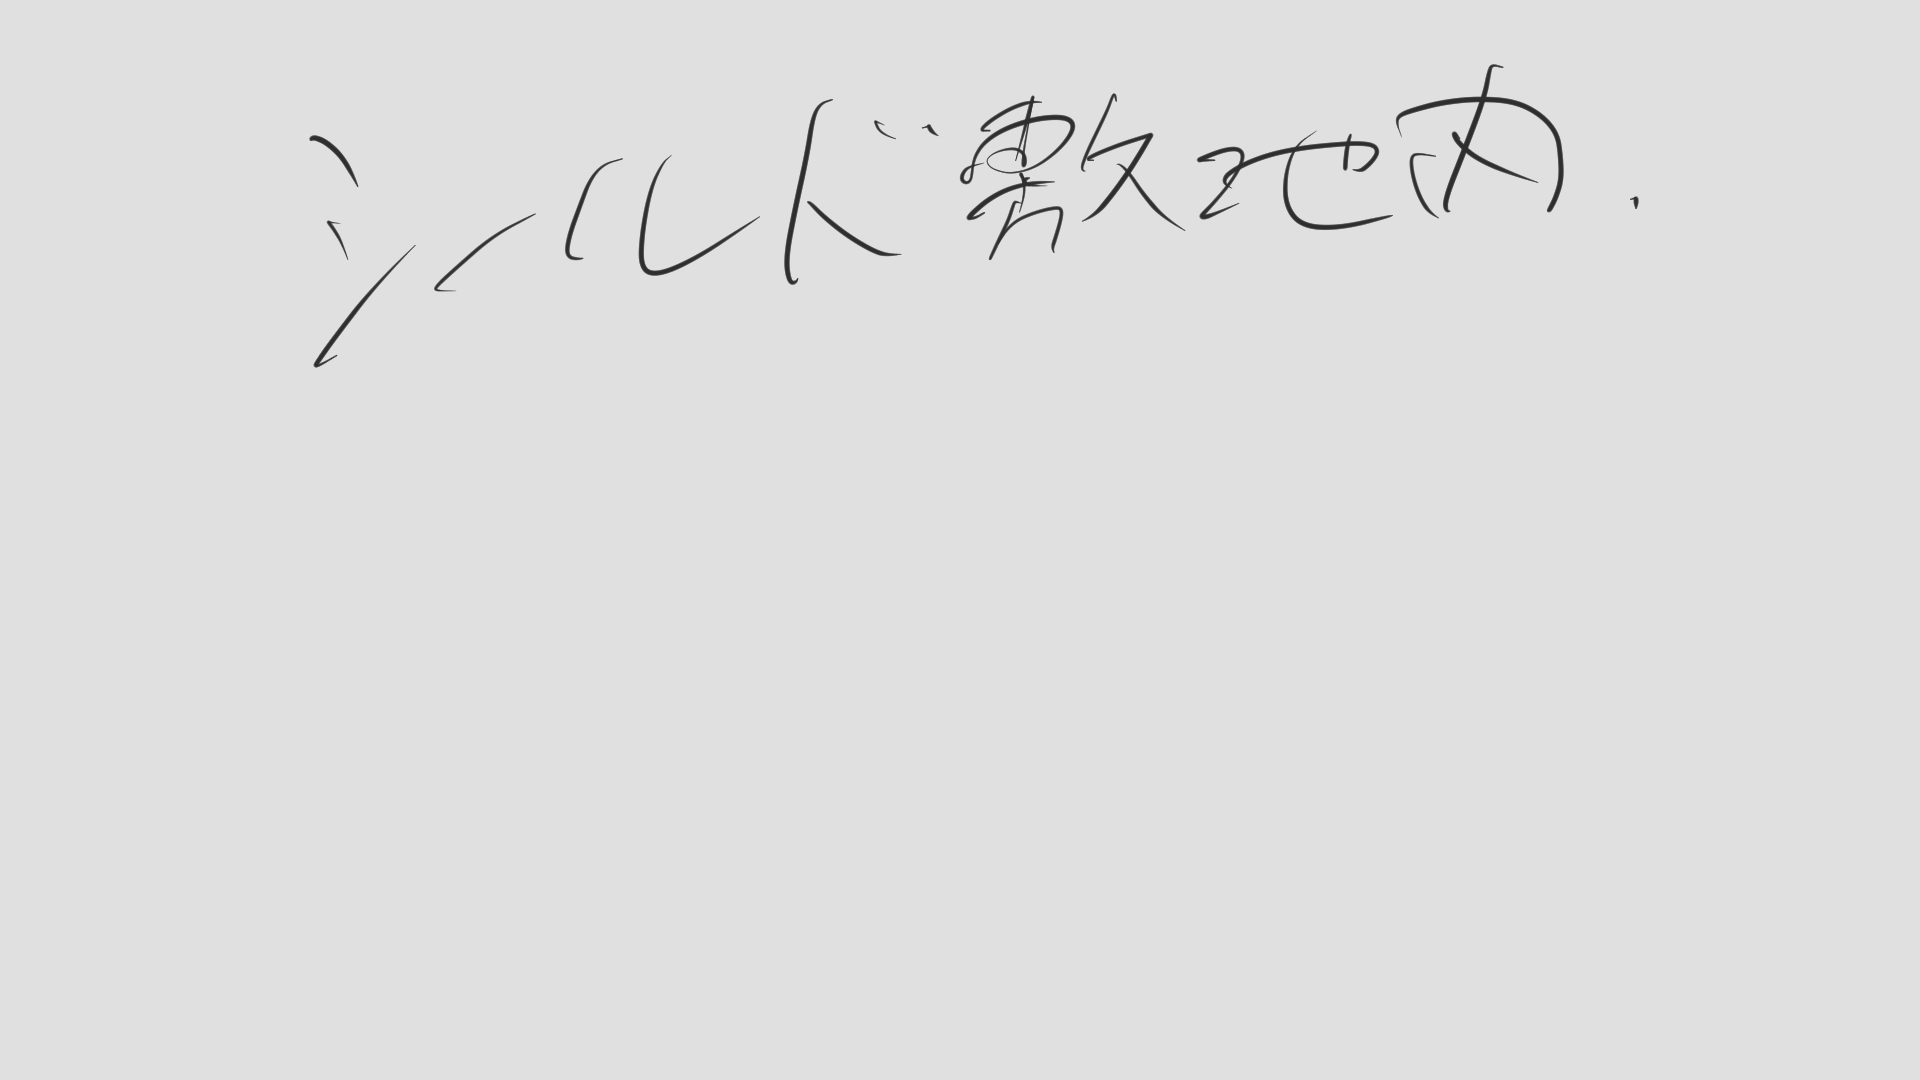 シールド敷地内.